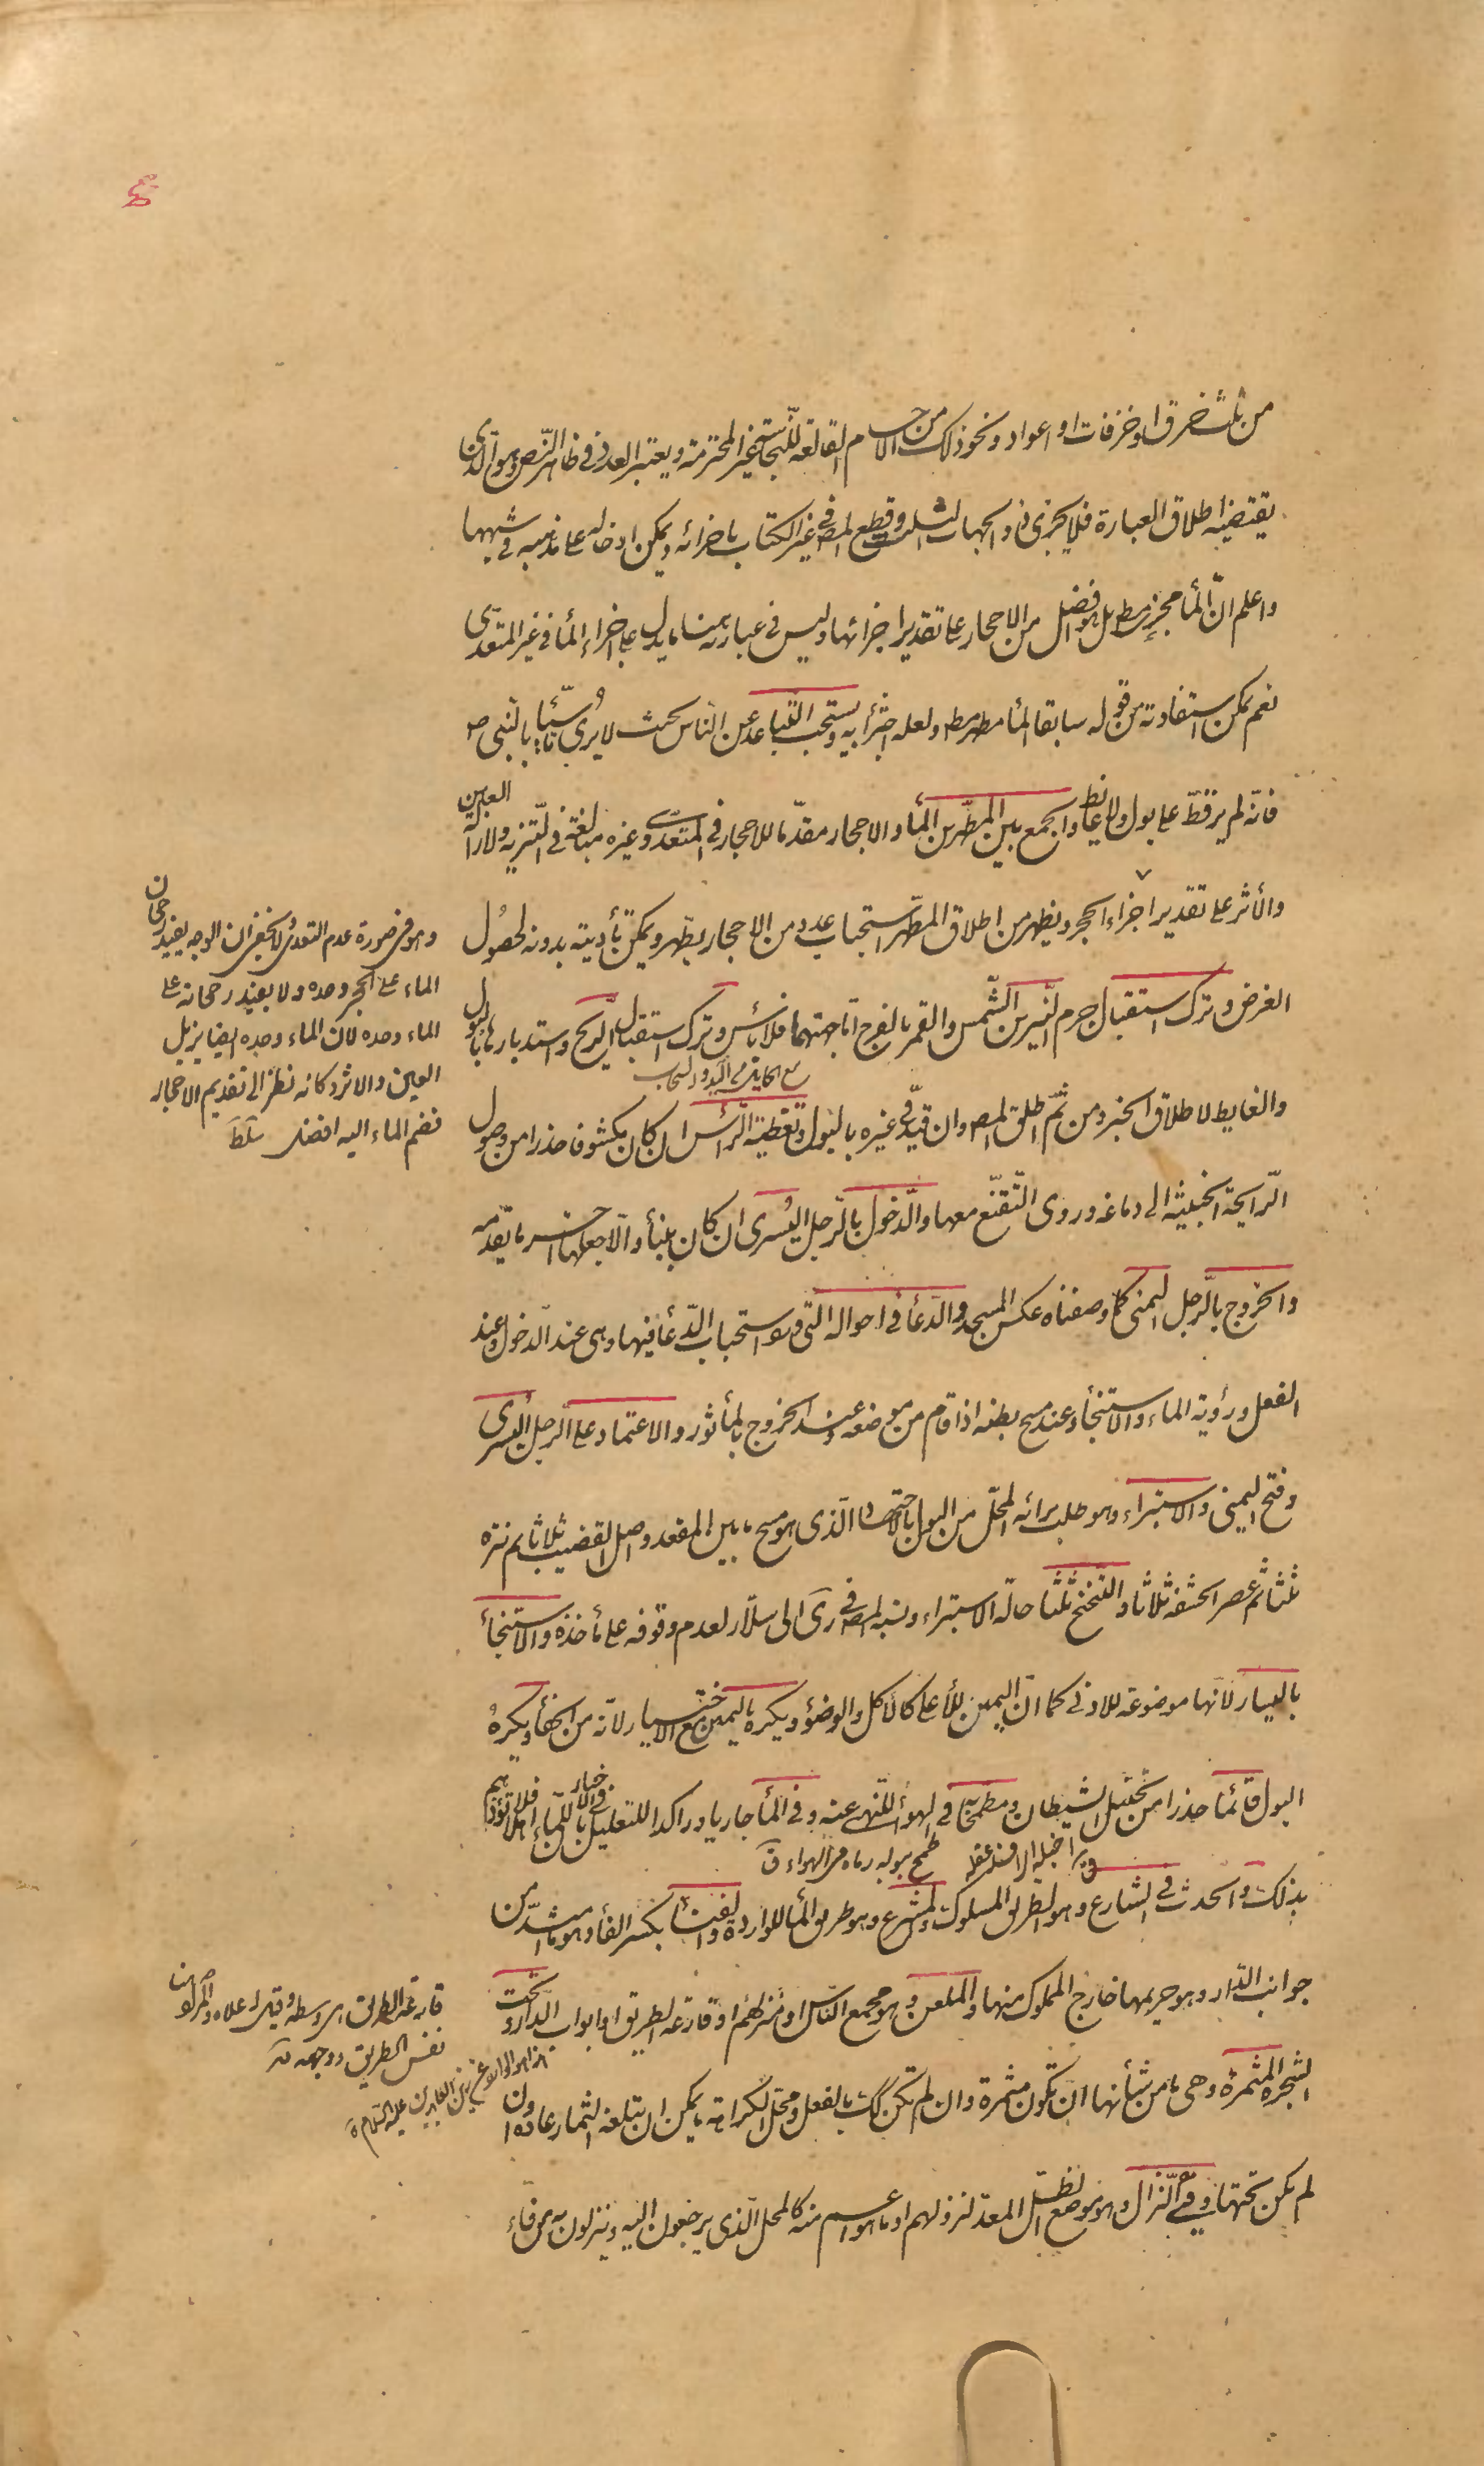 من ثلث خرق او خزفات او اعواد ونحو ذلك من الاجسام القالعة للنجاسة غير المحترمة ويعتبر العدد فى ظاهر النّص وهو الّذى
يقتضيه اطلاق العبارة فلا يجزى ذو الجهات الثلث وقطع المصر فى غير الكتاب باجزائه ويمكن ادخاله على مذهبه فى شبهها
واعلم انّ المأ مجزٍ مطلقا بل هو افضل من الاحجار على تقدير اجزائها وليس فى عبارته هنا ما يدل على اجزاء المأ فى غير المتعدّى
نعم يمكن استفادته من قوله سابقا المأ مطهر مط ولعله اجتزأ به ويستحب التّباعد عن النّاس بحيث لا يُرى تأسّيا بالنّبى ص
فانّه لم ير قطّ على بول ولا غائط والجمع بين المطهّرين المأ والاحجار مقدّما للاحجار فى المتعدّى وغيره مبالغة فى التنزيه ولازالة العين
والأثر على تقدير اجزاء الحجر ويظهر من اطلاق المطهّر استحباب عدد من الاحجار يطهّر ويمكن تأديته بدونه لحصُول
الغرض وترك استقبال جرم النيّرين الشّمس والقمر بالفرج امّا جهتهما فلا بأس وترك استقبال الرّيح واستدبارها بالبول
والغايط لاطلاق الخبر ومن ثَمّ اطلق المصر وان قيّد فى غيره بالبول وتغطية الرّأس ان كان مكشوفا حذرا من وصُول
الرّايحة الخبيثة الى دماغه وروى التّقنّع معها والدّخول بالرّجل اليُسرى ان كان ببنأ والّا جعلها اخر ما يقدّمه
والخروج بالرّجل اليمنى كما وصفناه عكس المسجد والدّعأ فى احواله الّتى ورد استحباب الدّعأ فيها وهى عند الدّخول وعند
الفعل ورؤية الماء والاستنجأ وعند مسح بطنه اذا قام من موضعه وعند الخروج بالمأثور والاعتماد على الرّجل اليُسرى
وفتح اليمنى والاستبراء وهو طلب برائة المحلّ من البول بالاجتهاد الّذى هو مسح ما بين المقعد واصل القضيب ثلاثا ثم نتره
ثلثا ثم عصر الحشفة ثلاثا والتّنحنح ثلثا حالة الاستبراء ونسبه المصر فى رى الى سلّار لعدم وقوفه على مأخذه والاستنجأ
باليسار لانّها موضوعة للادنى كما انّ اليمين للأعلى كالاكل والوضؤ ويكره باليمين مع الاختيار لانّه من الجفأ ويكرهُ
البول قائمًا حذرا من تخبّل الشيطان ومطمحًا به فى الهوأ للنّهى عنه وفى المأ جاريا وراكدا للتعليل فى الاخبار بانّ للمأ اهلا فلا تؤذهم
بذلك والحدث فى الشارع وهو الطريق المسلوك والمشرع وهو طريق المأ للواردة والفنأ بكسر الفأ وهو ما امتدّ من
جوانب الدّار وهو حريمها خارج المملوك منها والملعن وهو مجمع النّاس او منزلهم او قارعة الطريق او ابواب الدّار وتحت
الشجرة المثمرة وهى ما من شأنها ان تكون مثمرة وان لم تكن كك بالفعل ومحل الكراهة ما يمكن ان تبلغه الثمار عادة وان
لم يكن تحتها وفئ النزّال وهو موضع الظّل المعدّ لنزولهم او ما هو اعم منه كالمحل الّذى يرجعون اليه وينزلون به من فاء
وهو فى صورة عدم التعدى لا يخفى ان الوجه يفيد رجحان
الماء على الحجر وحده ولا يفيد رجحانه على
الماء وحده لان الماء وحده ايضا يزيل
العين والاثر وكانه نظر الى تقديم الاحجار
فضم الماء اليه افضل سلط
طمح ببوله رماه فى الهواء ق
قارعة الطريق اى وسطه وقيل اعلاه والمراد هنا
نفس الطريق ووجهه
هذا هو المروى عن زين العابدين عليه السّلام